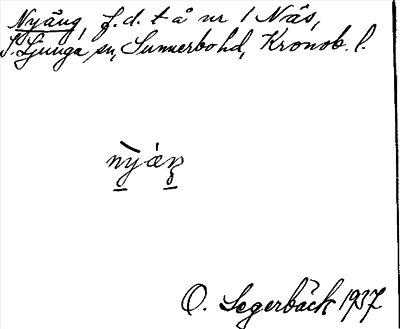 Nyäng, f.d. t å nr 1 Näs,
S. Ljunga sn, Sunnerbo hd, Kronob. l.
O. Segerbäck 1937